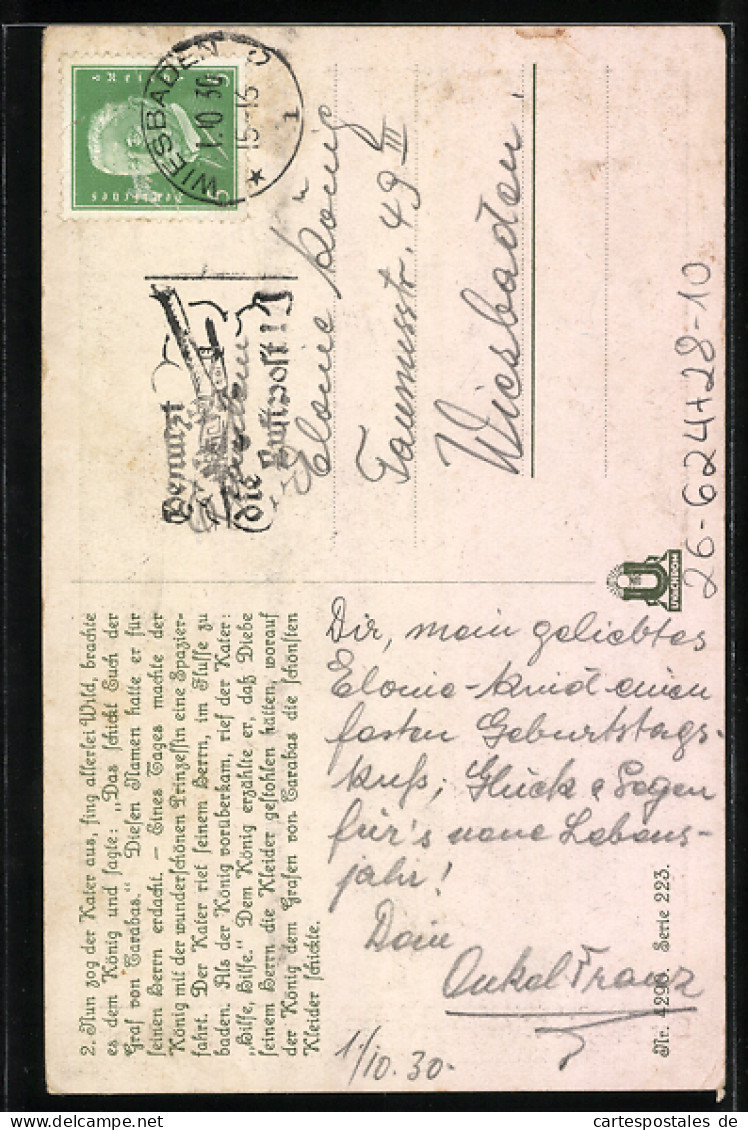 2. Nun zog der Kater aus, fing allerlei Wild, brachte
es dem König und sagte: „Das schickt Euch der
Graf von Carabas." Diesen Namen hatte er für
seinen Herrn erdacht. — Eines Tages machte der
König mit der wunderschönen Prinzessin eine Spazier-
fahrt. Der Kater rief seinem Herrn, im Flusse zu
baden. Als der König vorüberkam, rief der Kater:
„Hilfe, Hilfe." Dem König erzählte er, daß Diebe
seinem Herrn die Kleider gestohlen hätten, worauf
der König dem Grafen von Carabas die schönsten
Kleider schickte.
Dir, mein geliebtes
Elonie-Kind einen
festen Geburtstags-
kuß, Glück & Segen
für's neue Lebens-
jahr!
Dein
Onkel Franz
1./10.30.
Nr. 4290. Serie 223.
U
UVACHROM
WIESBADEN
1.10.30
15-16
1
Deutsches
Benutzt
die Luftpost!
Elonie König
Taunusstr. 49 III
Wiesbaden.
26-624+28-10
cartespostales de